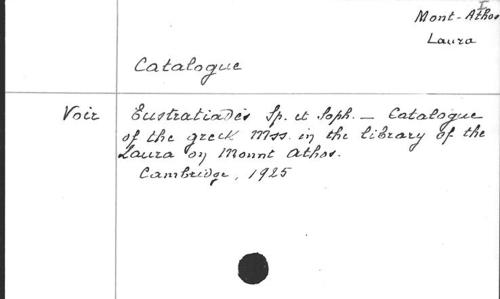 I
Mont-Athos
Laura
Catalogue
Voir Eustratiadès Sp. et Soph. — Catalogue
of the greek Mss. in the library of the
Laura on Mount Athos.
Cambridge, 1925